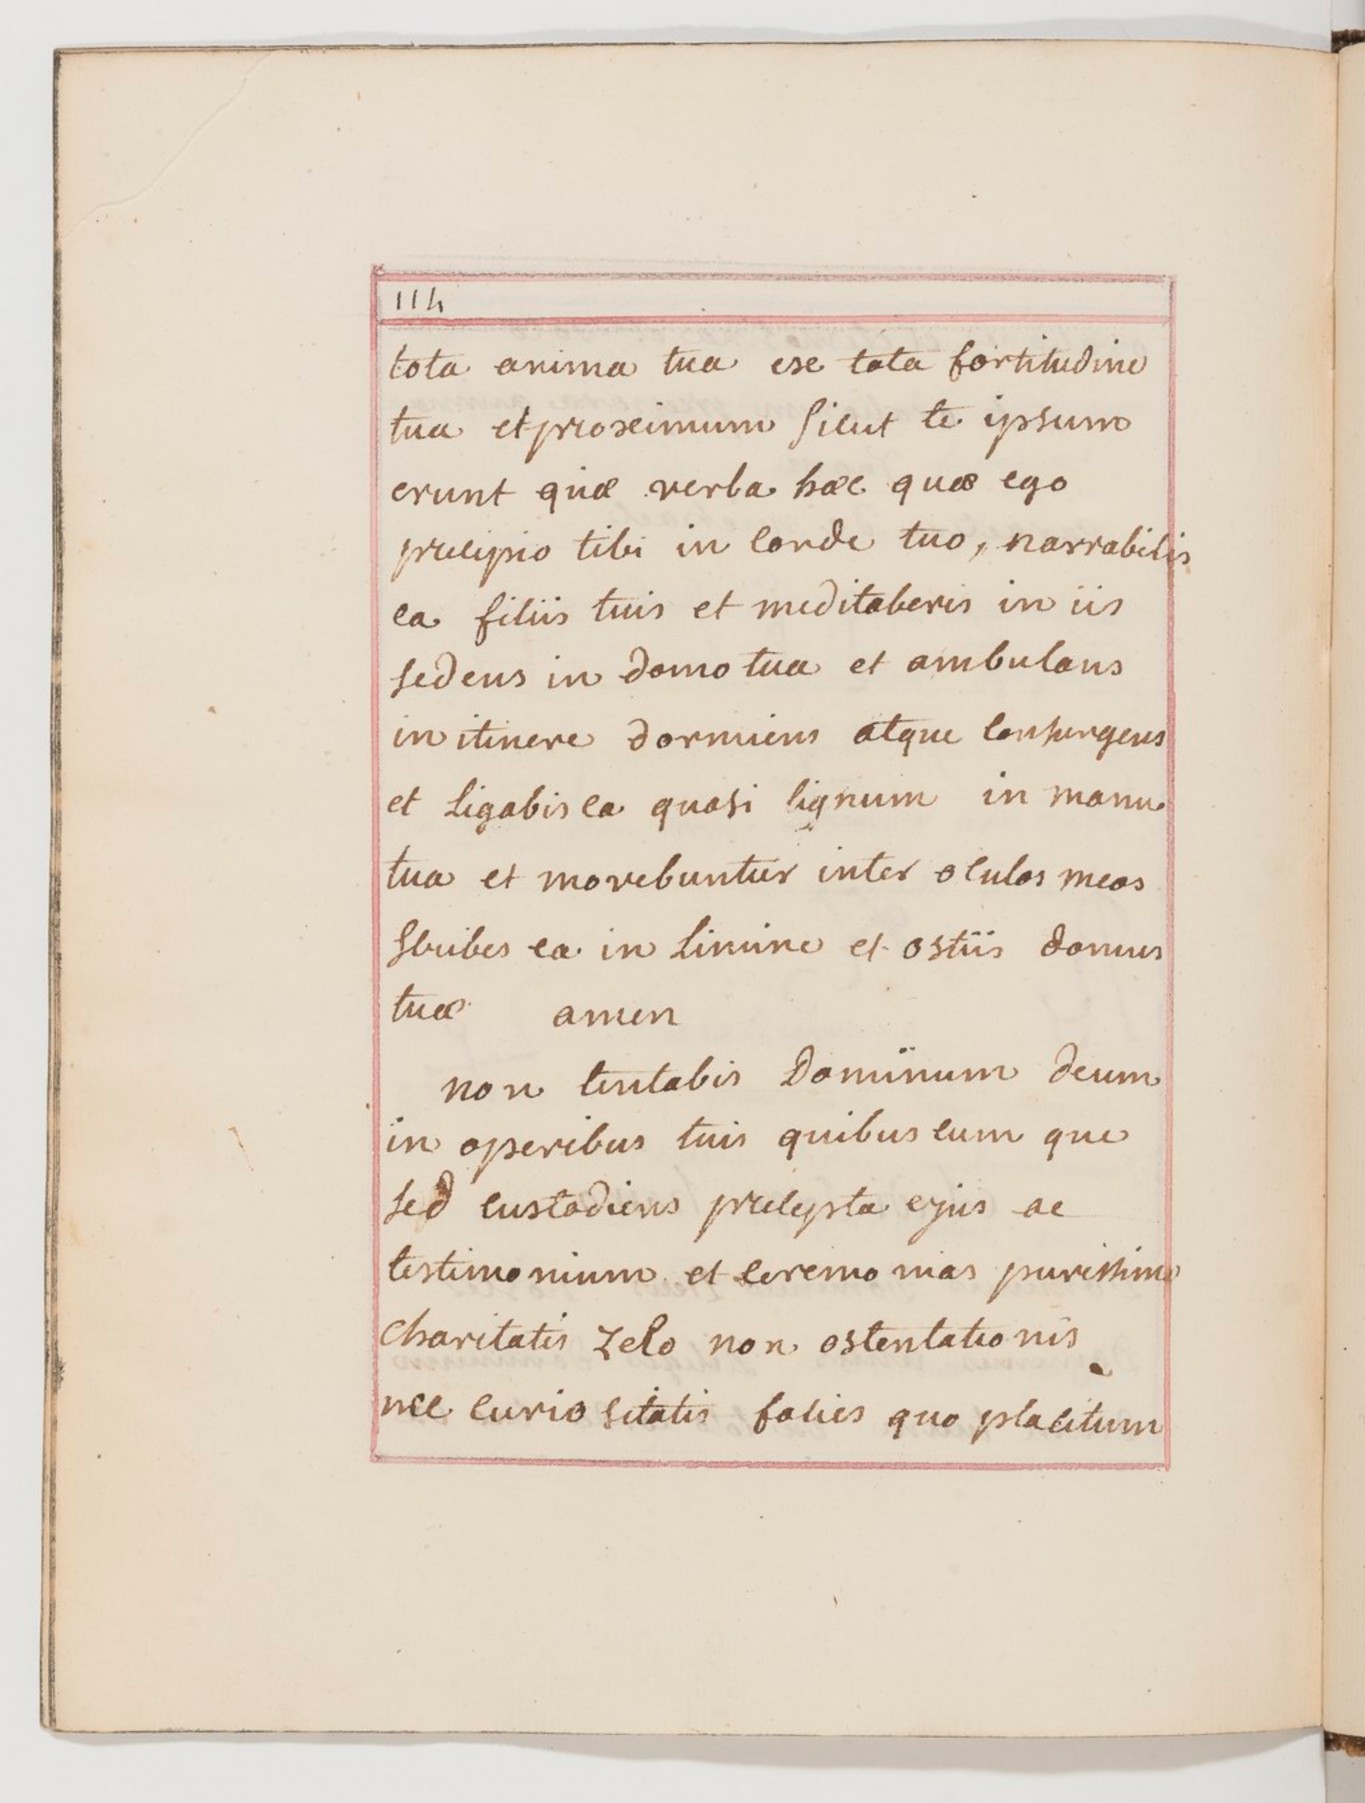 114
tota anima tua exe tota fortitudine
tua et proximum sicut te ipsum
erunt quæ verba hæc quæ ego
præcipio tibi in corde tuo, narrabilis
ea filiis tuis et meditaberis in iis
sedens in domo tua et ambulans
in itinere dormiens atque consurgens
et ligabis ea quasi lignum in manu
tua et movebuntur inter oculos meos
scribes ea in limine et ostiis domus
tuæ amen
non tentabis Dominum deum
in operibus tuis quibuscum que
sed custodiens precepta ejus ac
testimonium et ceremonias purissimo
charitatis zelo non ostentationis
nec curiositatis facies quo placitum